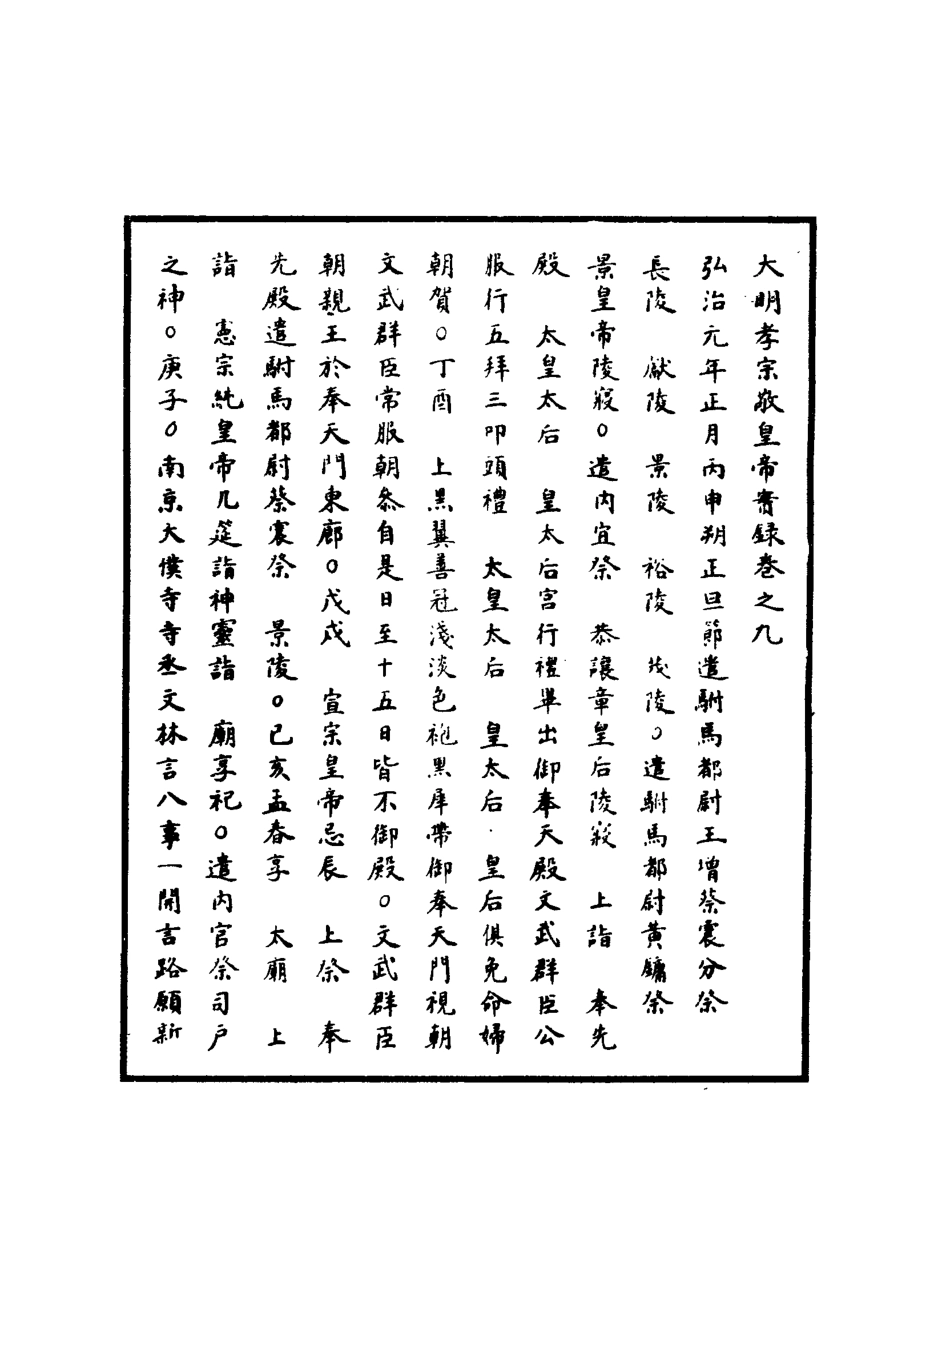 大明孝宗敬皇帝實録巻之九
弘治元年正月丙申朔正旦節遣駙馬都尉王增蔡震分祭
長陵　獻陵　景陵　裕陵　茂陵○遣駙馬都尉黃鏞祭
景皇帝陵寢○遣内官祭　恭讓章皇后陵寢　上詣　奉先
殿　太皇太后　皇太后宮行禮畢出御奉天殿文武群臣公
服行五拜三叩頭禮　太皇太后　皇太后　皇后俱免命婦
朝賀○丁酉　上黑翼善冠淺淡色袍黑犀帶御奉天門視朝
文武群臣常服朝叅自是日至十五日皆不御殿○文武群臣
朝親王於奉天門東廊○戊戌　宣宗皇帝忌辰　上祭　奉
先殿遣駙馬都尉蔡震祭　景陵○己亥孟春享　太廟　上
詣　憲宗純皇帝几筵詣神靈詣　廟享祀○遣内官祭司户
之神○庚子○南京大僕寺寺丞文林言八事一開言路願新